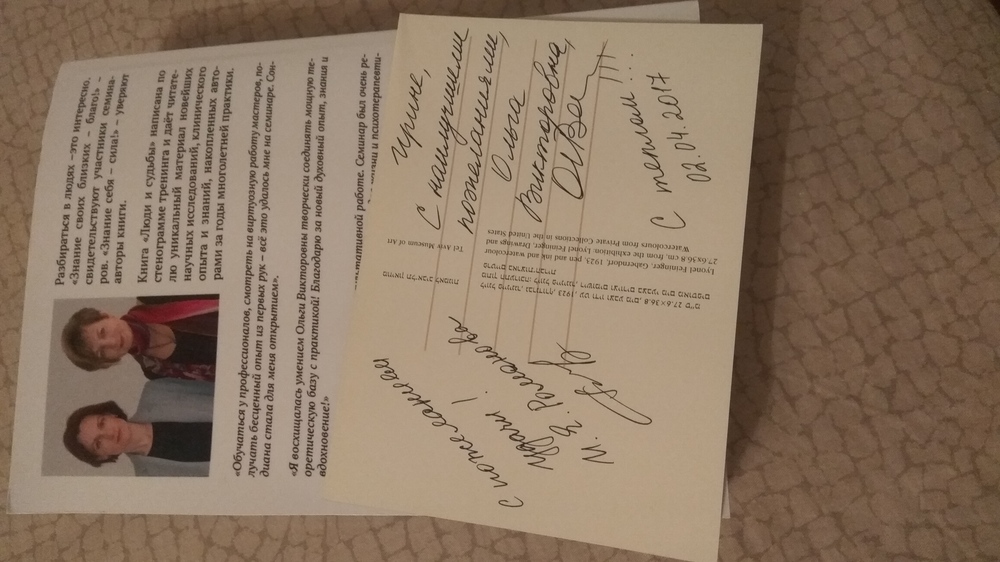 Разбираться в людях –это интересно.
«Знание своих близких – благо!» –
свидетельствуют участники семина-
ров. «Знание себя – сила!» – уверяют
авторы книги.
Книга «Люди и судьбы» написана по
стенограмме тренинга и даёт читате-
лю уникальный материал новейших
научных исследований, клинического
опыта и знаний, накопленных авто-
рами за годы многолетней практики.
«Обучаться у профессионалов, смотреть на виртуозную работу мастеров, по-
лучать бесценный опыт из первых рук – всё это удалось мне на семинаре. Сон-
диана стала для меня открытием».
«Я восхищалась умением Ольги Викторовны творчески соединять мощную те-
оретическую базу с практикой! Благодарю за новый духовный опыт, знания и
вдохновение!»
работе. Семинар был очень ре-
и психотерапевти-
Ирине,
С наилучшими
пожеланиями,
Ольга
Викторовна,
С теплом!..
02.04.2017
С пожеланием
Удачи!
М. Э. Романова
מוזיאון תל אביב לאמנות
Tel Aviv Museum of Art
Lyonel Feininger, Gaberndorf, 1923, pen and ink and watercolour
27.6x36.8 cm, from the exhibition: Lyonel Feininger, Drawings and
Watercolours from Private Collections in the United States